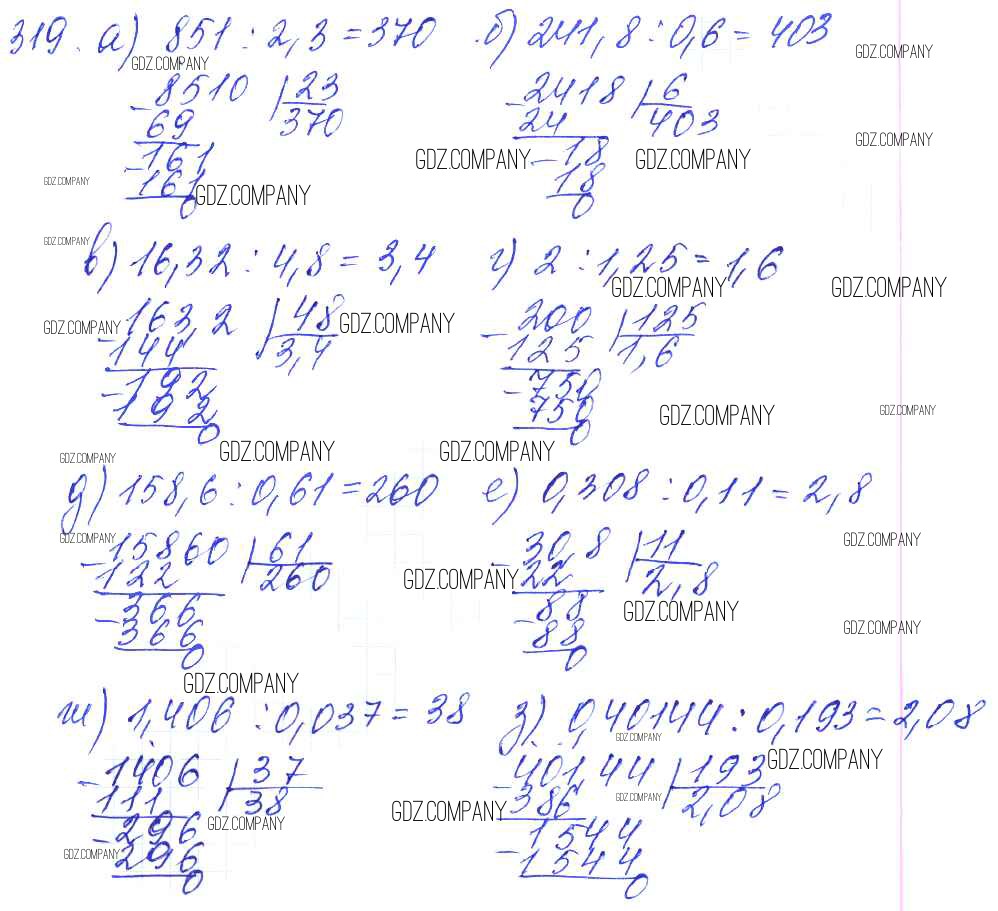 319. а) 851 : 2,3 = 370 б) 241,8 : 0,6 = 403
GDZ.COMPANY GDZ.COMPANY
- 8510 | 23 - 2418 | 6
69 370 24 403
GDZ.COMPANY
- 161 - 18
GDZ.COMPANY GDZ.COMPANY
161 18
GDZ.COMPANY GDZ.COMPANY
0 0
GDZ.COMPANY
в) 16,32 : 4,8 = 3,4 г) 2 : 1,25 = 1,6
GDZ.COMPANY GDZ.COMPANY
- 163,2 | 48 - 200 | 125
GDZ.COMPANY GDZ.COMPANY
144 3,4 125 1,6
- 192 - 750
192 750
GDZ.COMPANY GDZ.COMPANY
0 0
GDZ.COMPANY GDZ.COMPANY GDZ.COMPANY
д) 158,6 : 0,61 = 260 е) 0,308 : 0,11 = 2,8
GDZ.COMPANY GDZ.COMPANY
- 15860 | 61 - 30,8 | 11
122 260 22 2,8
GDZ.COMPANY
- 366 - 88
GDZ.COMPANY GDZ.COMPANY
366 88
0 0
GDZ.COMPANY
ж) 1,406 : 0,037 = 38 з) 0,40144 : 0,193 = 2,08
GDZ.COMPANY GDZ.COMPANY
- 1406 | 37 - 401,44 | 193
111 38 386 2,08
GDZ.COMPANY GDZ.COMPANY GDZ.COMPANY
- 296 - 1544
296 1544
GDZ.COMPANY
0 0